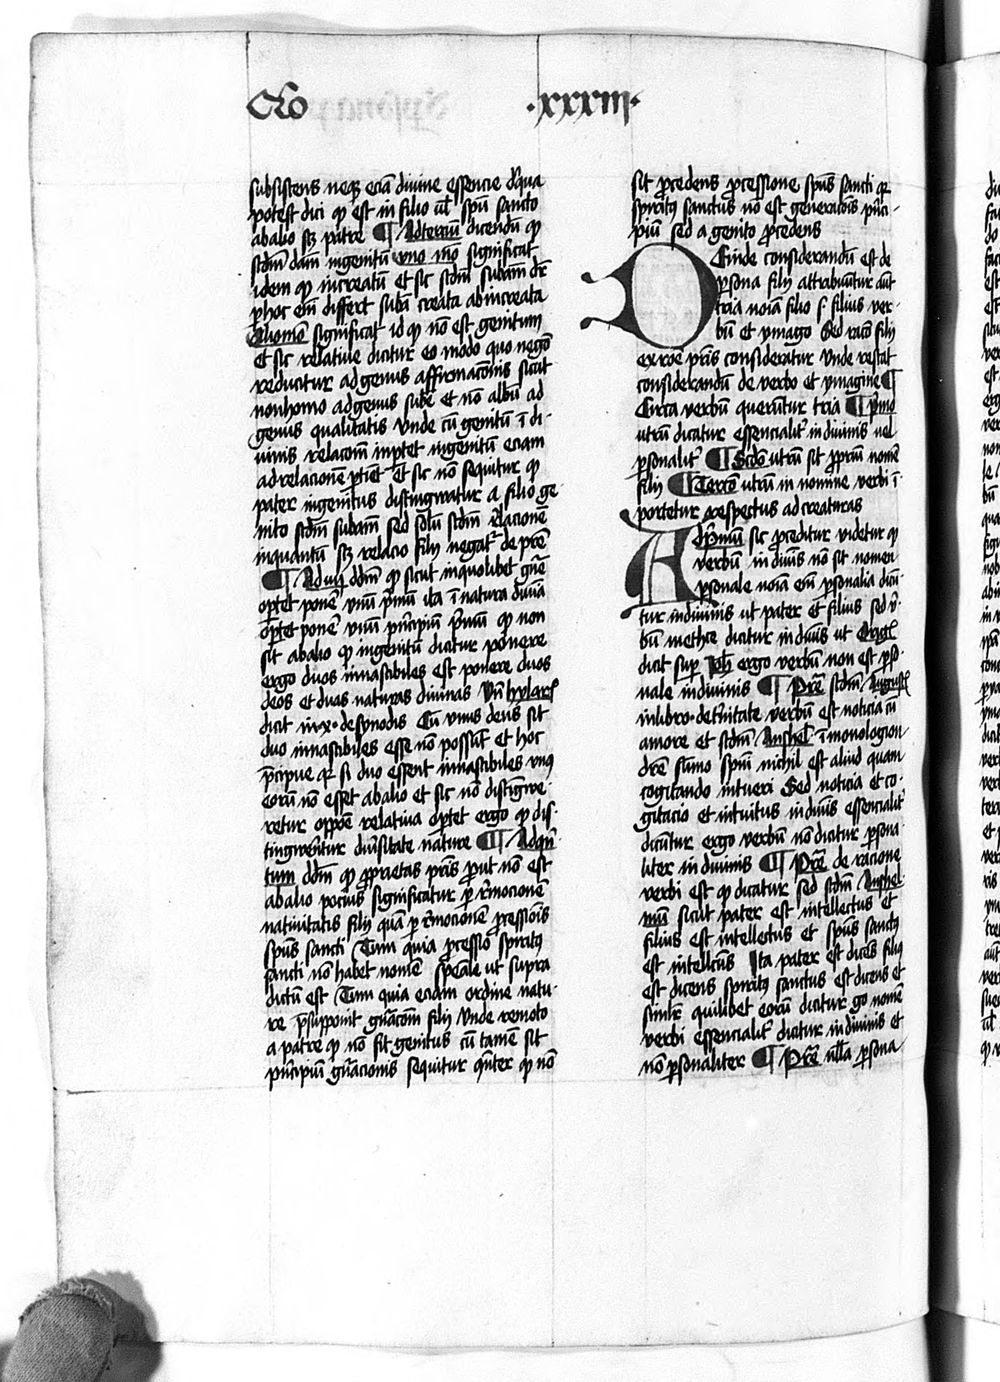 Qo .xxxiii.
subsistens neqz eciā diuine essencie de qua
potest dici qp est in filio uel spū sancto
ab alio sz patre ¶ Ad terciū dicendū qp
scdm dam ingenitū uno mō significat
idem qp increatū et sic scdm subam dr̄
p hoc em̄ differt subā creata ab increata
Alio modo significat id qp nō est genitum
et sic relatiue dicitur eo modo quo negō
reducitur ad genus affirmacōnis sicut
non homo ad genus sube et nō albū ad
genus qualitatis Unde cū genitū ī di-
uinis relacōm īnptet ingenitū eciam
ad relacionē ptiet Et sic nō sequitur qp
pater ingenitus distingwatur a filio ge-
nito scdm subam sed solū scdm relacionē
inquantū sz relacio filij negat~ de prē
¶ Ad iiij ddm qp sicut in quolibet gnē
optet ponē vnū pmū ita ī natura diuīa
optet ponē vnū pncipiū pmū qp non
sit ab alio qp ingenitū dicitur ponere
ergo duos innascibiles est ponere duos
deos et duas naturas diuinas Vn̄ hylari9
dicit in .x. de synodis Cū vnus deus sit
duo innascibiles esse nō possūt et hoc
pcipue qr si duo essent innascibiles vn9
eorū nō esset ab alio et sic nō distīgwe-
retur oppōe relatiua optet ergo qp dis-
tingwerētur diuersitate nature ¶ Ad qn̄-
tum ddm qp proprietas pris put nō est
ab alio pocius significatur p remocionē
natiuitatis filij quā p remocionē pcessiōis
spus sancti Tum quia pcessio spiritus
sancti nō habet nomē speciale ut supra
dictū est Tum quia eciam ordine natu-
re psupponit gnacōm filij Unde remoto
a patre qp nō sit genitus cū tamē sit
pncipiū gnacionis sequitur qnter qp nō
sit pcedens pcessione spus sancti qr
spiritus sanctus nō est generacōis pnci-
piū sed a genito pcedens
Deinde considerandū est de
psona filij attrabuūtur aūt
tria noīa filio s. filius ver-
bū et ymago Sed racō filij
ex rōe pris consideratur Unde restat
considerandū de verbo et ymagine ¶
Circa verbū queruntur tria ¶ Pmo
utrū dicatur essencialit~ in diuinis uel
psonalit~ ¶ Scdo utrū sit ppriū nomē
filij ¶ Tercō utrū in nomine verbi ī-
portetur respectus ad creaturas
Ad pmū sic pceditur videtur qp
verbū in diuīs nō sit nomen
psonale noīa em̄ psonalia dicū-
tur in diuinis ut pater et filius sed v-
bū methce dicitur in diuīs ut Origꝰ
dicit sup Joh ergo verbū non est pso-
nale in diuinis ¶ Pre scdm Augustꝰ
in libro de trinitate verbū est noticia cū
amore et scdm Anshel ī monologion
dicē sūmo spūi nichil est aliud quam
cogitando intueri Sed noticia et co-
gitacio et intuitus in diuīs essencialit~
dicūtur ergo verbū nō dicitur psona-
liter in diuinis ¶ Pre de racione
verbi est qp dicatur sed scdm Anshel-
mū sicut pater est intellectus et
filius est intellectus et spūs sanctꝰ
est intellectus Ita pater est dicēs filiꝰ
est dicens spiritꝰ sanctus est dicens et
similr quilibet eorū dicitur go nomē
verbi essencialit~ dicitur in diuinis et
nō psonaliter ¶ Pre nlla psona